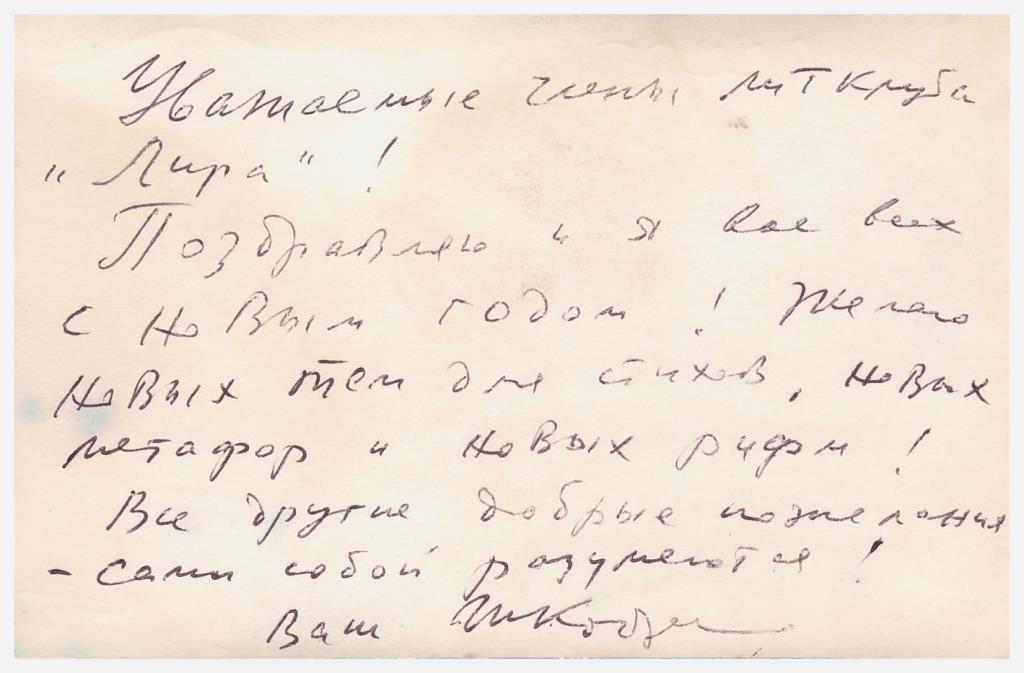 Уважаемые члены литклуба
„Лира“!
Поздравляю и я вас всех
с новым годом! Желаю
новых тем для стихов, новых
метафор и новых рифм!
Все другие добрые пожелания
- сами собой разумеются!
Ваш